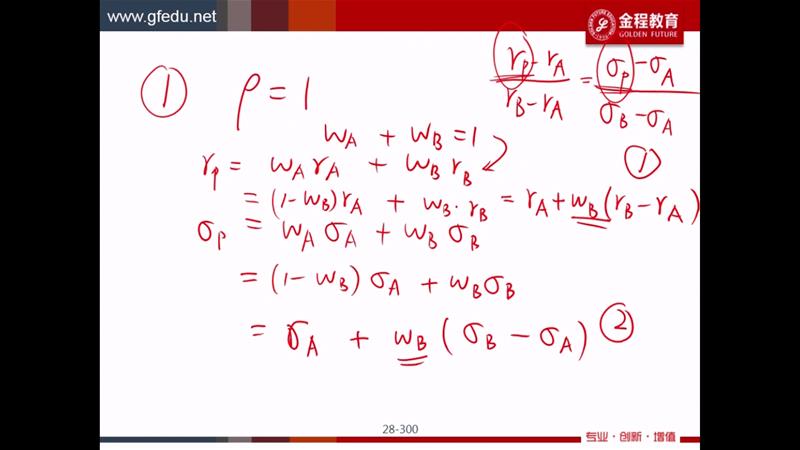 www.gfedu.net
金程教育
GOLDEN FUTURE
① ρ = 1
(r_P - r_A) / (r_B - r_A) = (σ_P - σ_A) / (σ_B - σ_A)
w_A + w_B = 1
①
r_P = w_A r_A + w_B r_B
= (1 - w_B) r_A + w_B · r_B = r_A + w_B (r_B - r_A)
σ_P = w_A σ_A + w_B σ_B
= (1 - w_B) σ_A + w_B σ_B
= σ_A + w_B (σ_B - σ_A) ②
28-300
专业·创新·增值